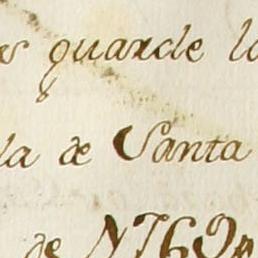 guarde la
la de Santa
de 1769